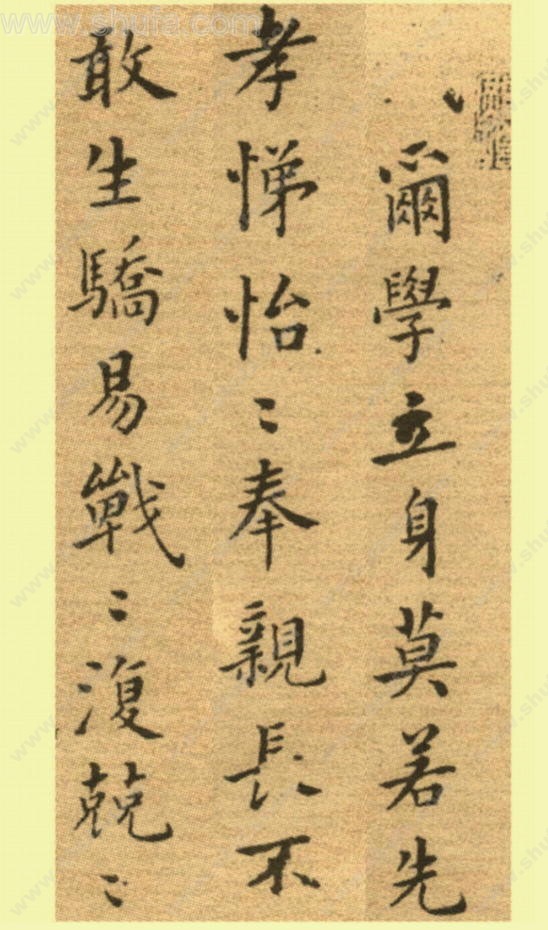 爾學立身莫若先
孝悌怡〻奉親長不
敢生驕易戰〻復兢〻
www.shufa.com